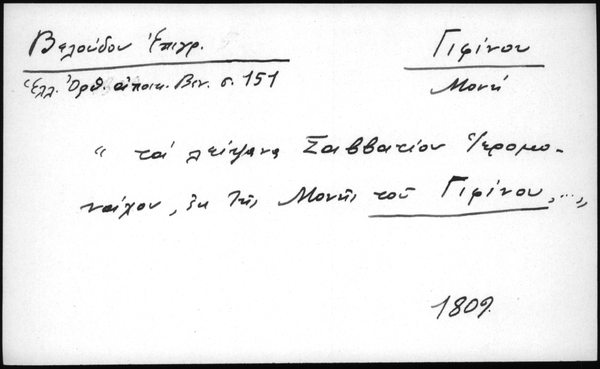 Βελούδου Ἐπιγρ.
Ἑλλ. Ὀρθ. ἀποικ. Βεν. σ. 151
Γιφίνου
Μονή
"τά λείψανα Σαββατίου ἱερομο-
νάχου, ἐκ τῆς Μονῆς τοῦ Γιφίνου,...„
1809.